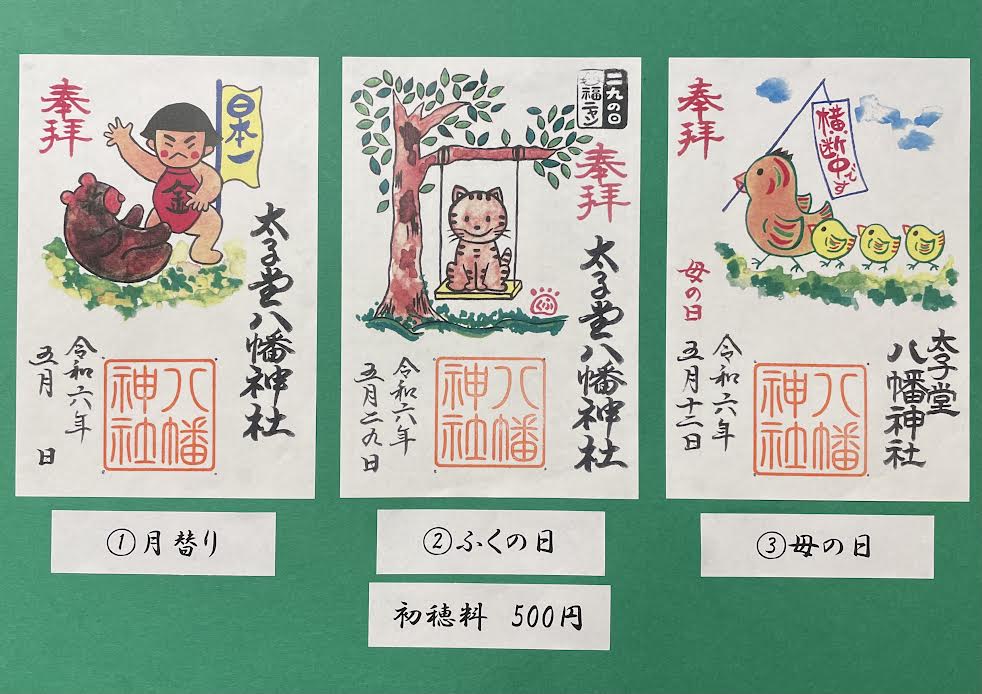 奉拝
日本一
金
太子堂八幡神社
令和六年
五月 日
八幡
神社
①月替り
二九の日
福ニャン
奉拝
ふく
太子堂八幡神社
令和六年
五月二九日
八幡
神社
②ふくの日
奉拝
横断中です
母の日
太子堂
八幡神社
令和六年
五月十二日
八幡
神社
③母の日
初穂料 500円